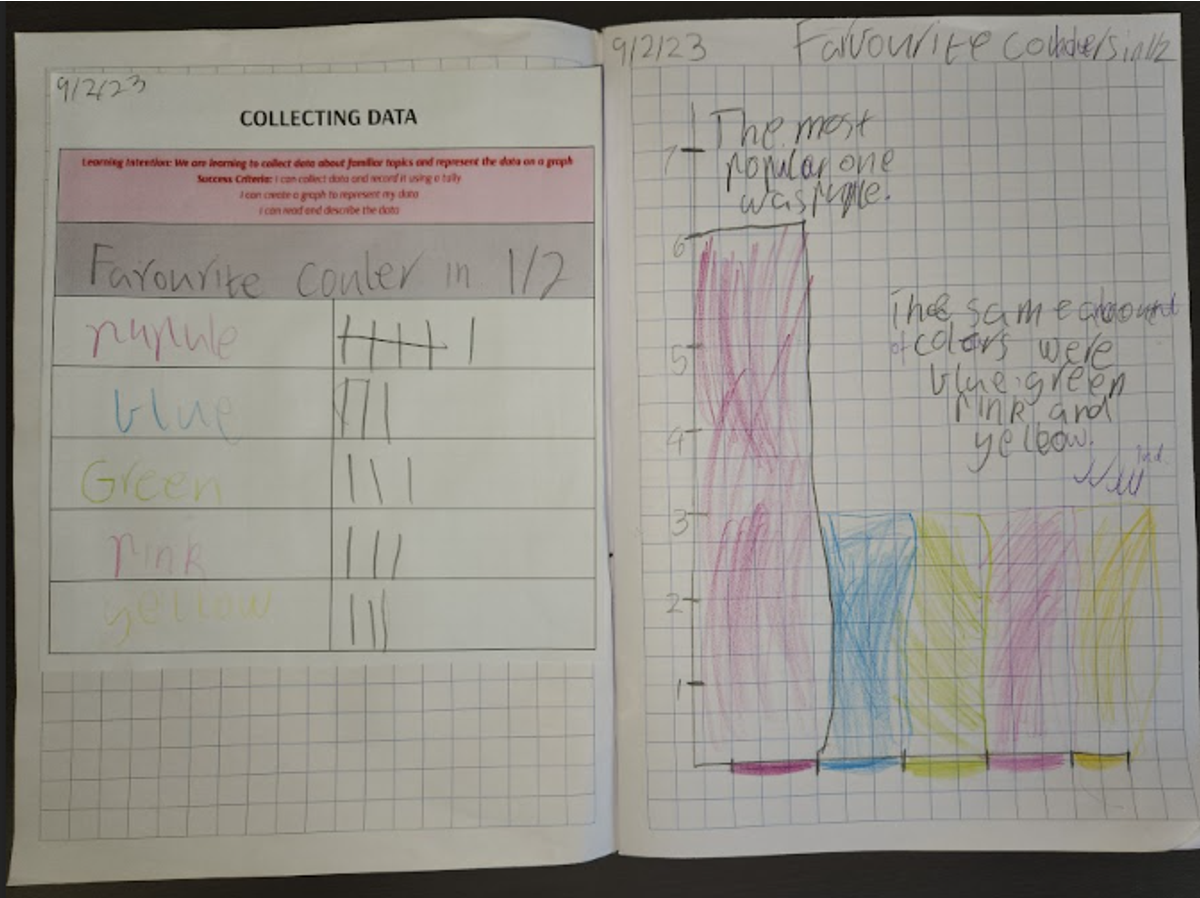 9/2/23
COLLECTING DATA
Learning Intention: We are learning to collect data about familiar topics and represent the data on a graph
Success Criteria: I can collect data and record it using a tally
I can create a graph to represent my data
I can read and describe the data
Favourite couler in 1/2
blue
Green
pink
yellow
9/2/23 Favourite in 1/2
The most
popular one
was
7
6
5
4
3
2
1
The same
of colors were
blue green
pink and
yellow.
Ind.